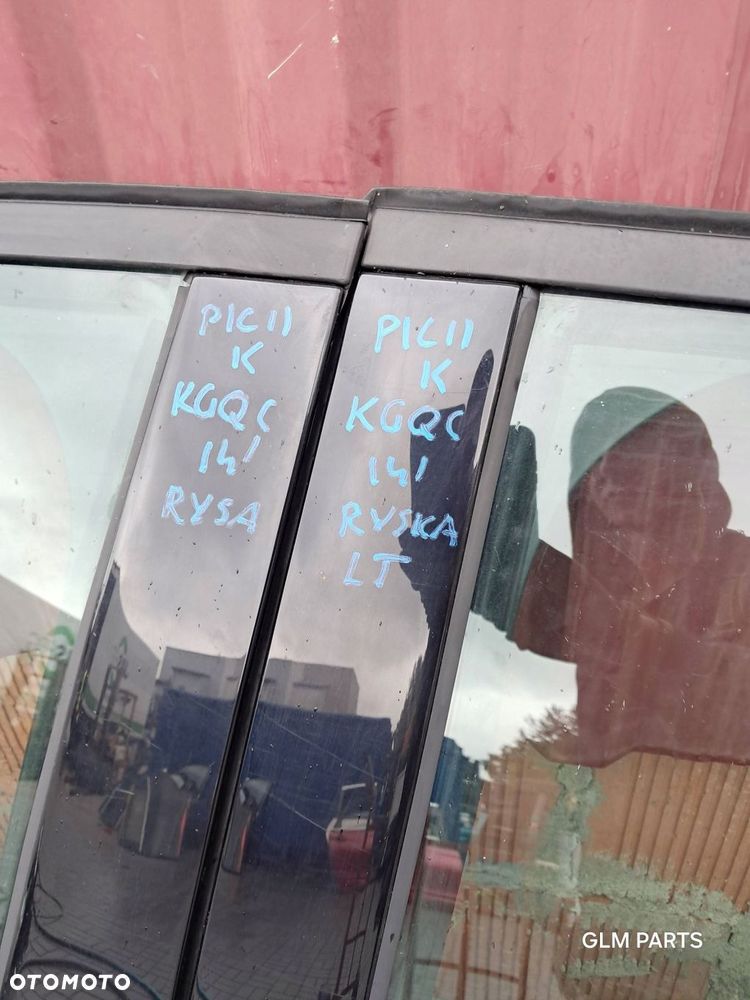 PICII
K
KGQC
141
RYSA
PICII
K
KGQC
141
RYSKA
LT
GLM PARTS
OTOMOTO